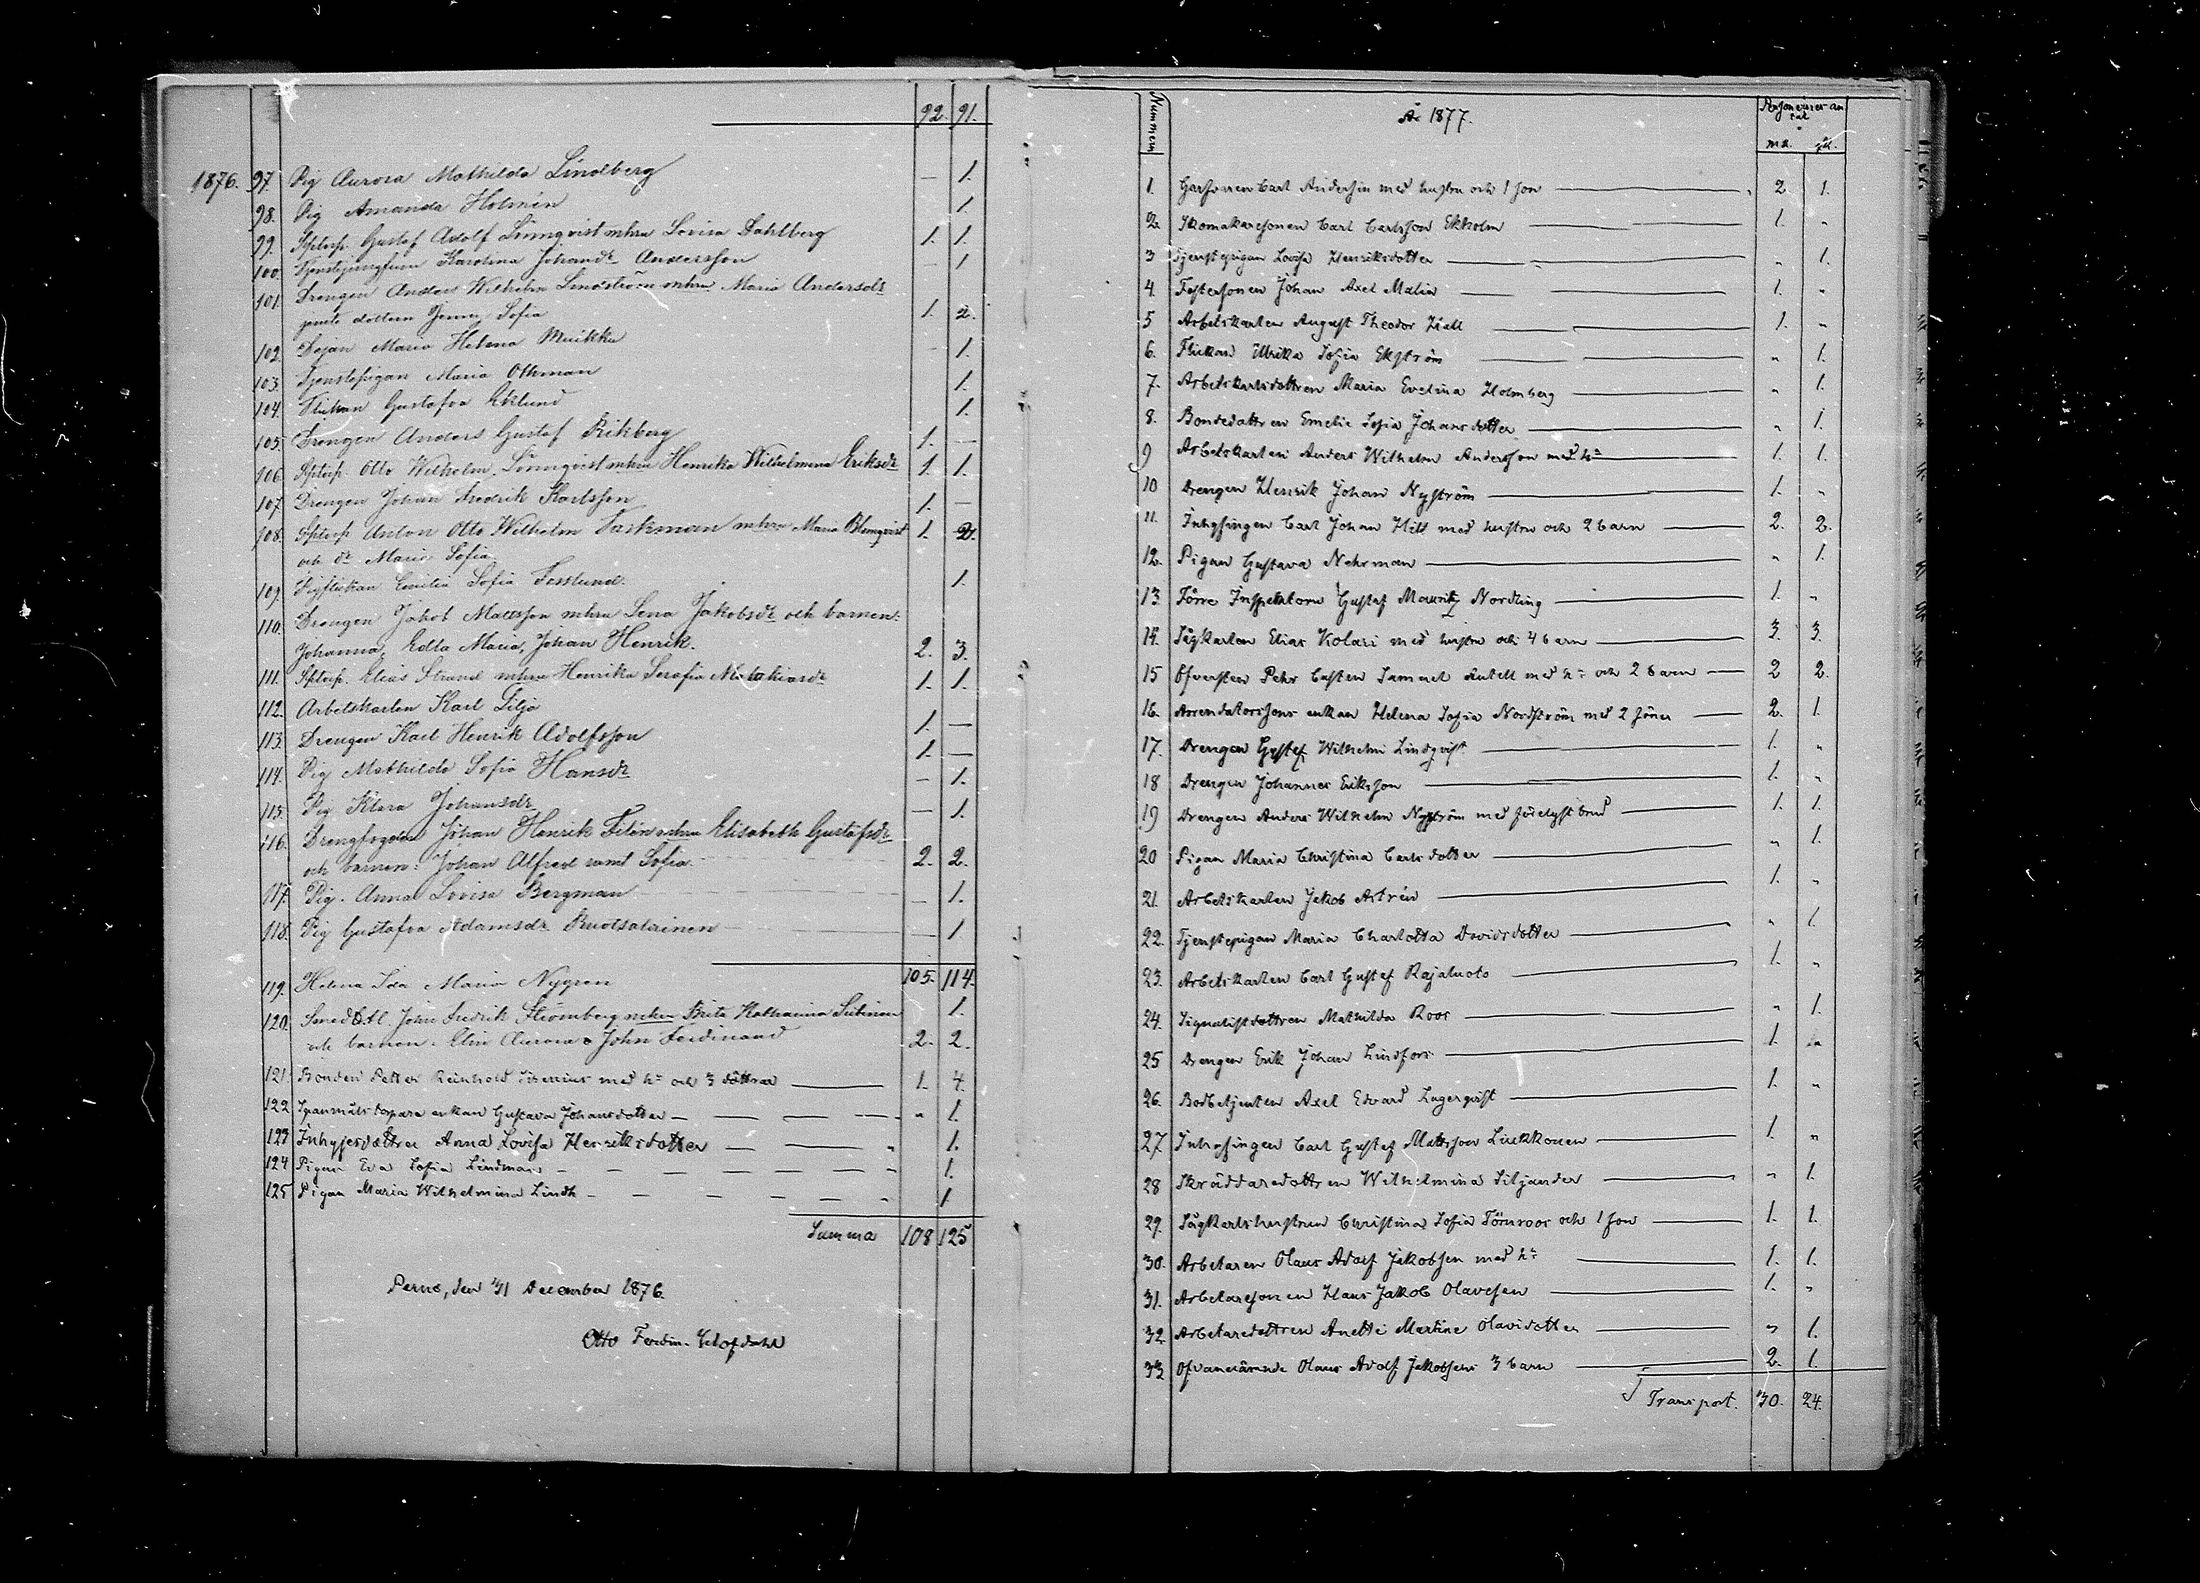 92. 91.
1876. 97 Pig Aurora Mathilda Lindberg — 1.
98. Pig Amanda Holmén 1.
99. Sptorp. Gustaf Adolf Lönnqvist mhu Lovisa Dahlberg 1. 1.
100. Karolina Johansdr Andersson — 1
101. Drengen Anders Wilhelm Lindström mhu Maria Andersdr
jemte dottern Jenny Sofia 1. 2.
102. Dejan Maria Helena Muikku — 1.
103. Tjenstepigan Maria Othman 1.
104. Flickan Gustafva Eklund 1.
105. Drengen Anders Gustaf Rikberg 1. —
106. Sptorp. Otto Wilhelm Lönnqvist mhu Henrika Wilhelmina Eriksdr 1. 1.
107. Drengen Johan Fredrik Karlsson 1. —
108. Sptorp Anton Otto Wilhelm mhu Maria Blomqvist 1. 2.
och dr Maria Sofia
109. Emilia Sofia 1.
110. Drengen Jakob Mattsson mhu Lena Jakobsdr och barnen:
Johanna, Edla Maria, Johan Henrik. 2. 3.
111. Sptorp. Elias Strand mhu Henrika Serafia 1. 1.
112. Arbetskarlen Karl Lilja
113. Drengen Karl Henrik Adolfsson 1. —
114. Pig Mathilda Sofia Hansdr — 1.
115. Pig Klara Johansdr — 1.
116. Drengfogden Johan Henrik mhu Elisabeth Gustafsdr
och barnen: Johan Alfred samt Sofia 2. 2.
117. Pig. Anna Lovisa Bergman — 1.
118. Pig Gustafva Adamsdr Ruotsalainen — 1
105. 114.
119. Helena Ida Maria Nygren 1.
120. John Fredrik Strömberg mhu Brita Katharina
och barnen: Elin Aurora & John Ferdinand 2. 2.
121. Bonden Petter Reinhold med hu och 3 döttrar 1. 4.
122 enkan Gustava Johansdotter " 1.
123 Inhysesdottren Anna Lovisa Henriksdotter " 1.
124 Pigan Eva Sofia Lindman 1.
125 Pigan Maria Wilhelmina Lindh " 1
Summa 108 125
Perno, den 31 December 1876.
Otto Ferdin.
Nummern
År 1877.
Personernes antal
mk. qk.
1. Garfvaren Carl Andersin med hustru och 1 son 2 1.
2. Skomakaresonen Carl Carlsson Ekholm 1. "
3 Tjenstepigan Lovisa Henriksdotter " 1.
4. Fostersonen Johan Axel Malin 1. "
5 Arbetskarlen August Theodor Häll 1. "
6. Flickan Ulrika Sofia Ekström " 1.
7. Arbetskarlsdottren Maria Evelina Holmberg " 1.
8. Bondedottren Emelie Sofia Johansdotter " 1.
9 Arbetskarlen Anders Wilhelm Andersson med hu 1. 1.
10 Drengen Henrik Johan Nyström 1. "
11. Inhysingen Carl Johan Hill med hustru och 2 barn 2. 2.
12. Pigan Gustava Nehrman " 1.
13. Förre Inspektorn Gustaf Mauritz Nordling 1. "
14. Sågkarlen Elias Kolari med hustru och 4 barn 3. 3.
15 Öfversten Pehr Casten Samuel Antell med hu och 2 barn 2 2.
16. Arrendatorssons enkan Helena Sofia Nordström med 2 söner 2. 1.
17. Drengen Gustaf Wilhelm Lindqvist 1. "
18 Drengen Johannes Eriksson 1. "
19 Drengen Anders Wilhelm Nyström med förelyst brud 1. 1.
20 Pigan Maria Christina Carlsdotter " 1.
21. Arbetskarlen Jakob Astrén 1. "
22. Tjenstepigan Maria Charlotta Davidsdotter " 1.
23. Arbetskarlen Carl Gustaf Rajaluoto 1. "
24. Signalistdottren Mathilda Roos " 1.
25 Drengen Erik Johan Lindfors 1. "
26. Bodbetjenten Axel Edvard Lagerqvist 1. "
27 Inhysingen Carl Gustaf Mattsson Liukkonen 1. "
28 Skräddaredottren Wilhelmina Siljander " 1.
29. Sågkarlshustrun Christina Sofia Törnroos och 1 son 1. 1.
30. Arbetaren Olaus Adolf Jakobsen med hu 1. 1.
31. Arbetaresonen Hans Jakob Olavesen 1. "
32 Arbetaredottren Anetti Martine Olavidotter " 1.
33 Ofvannämnde Olaus Adolf Jakobsens 3 barn 2. 1.
Transport. 30. 24.